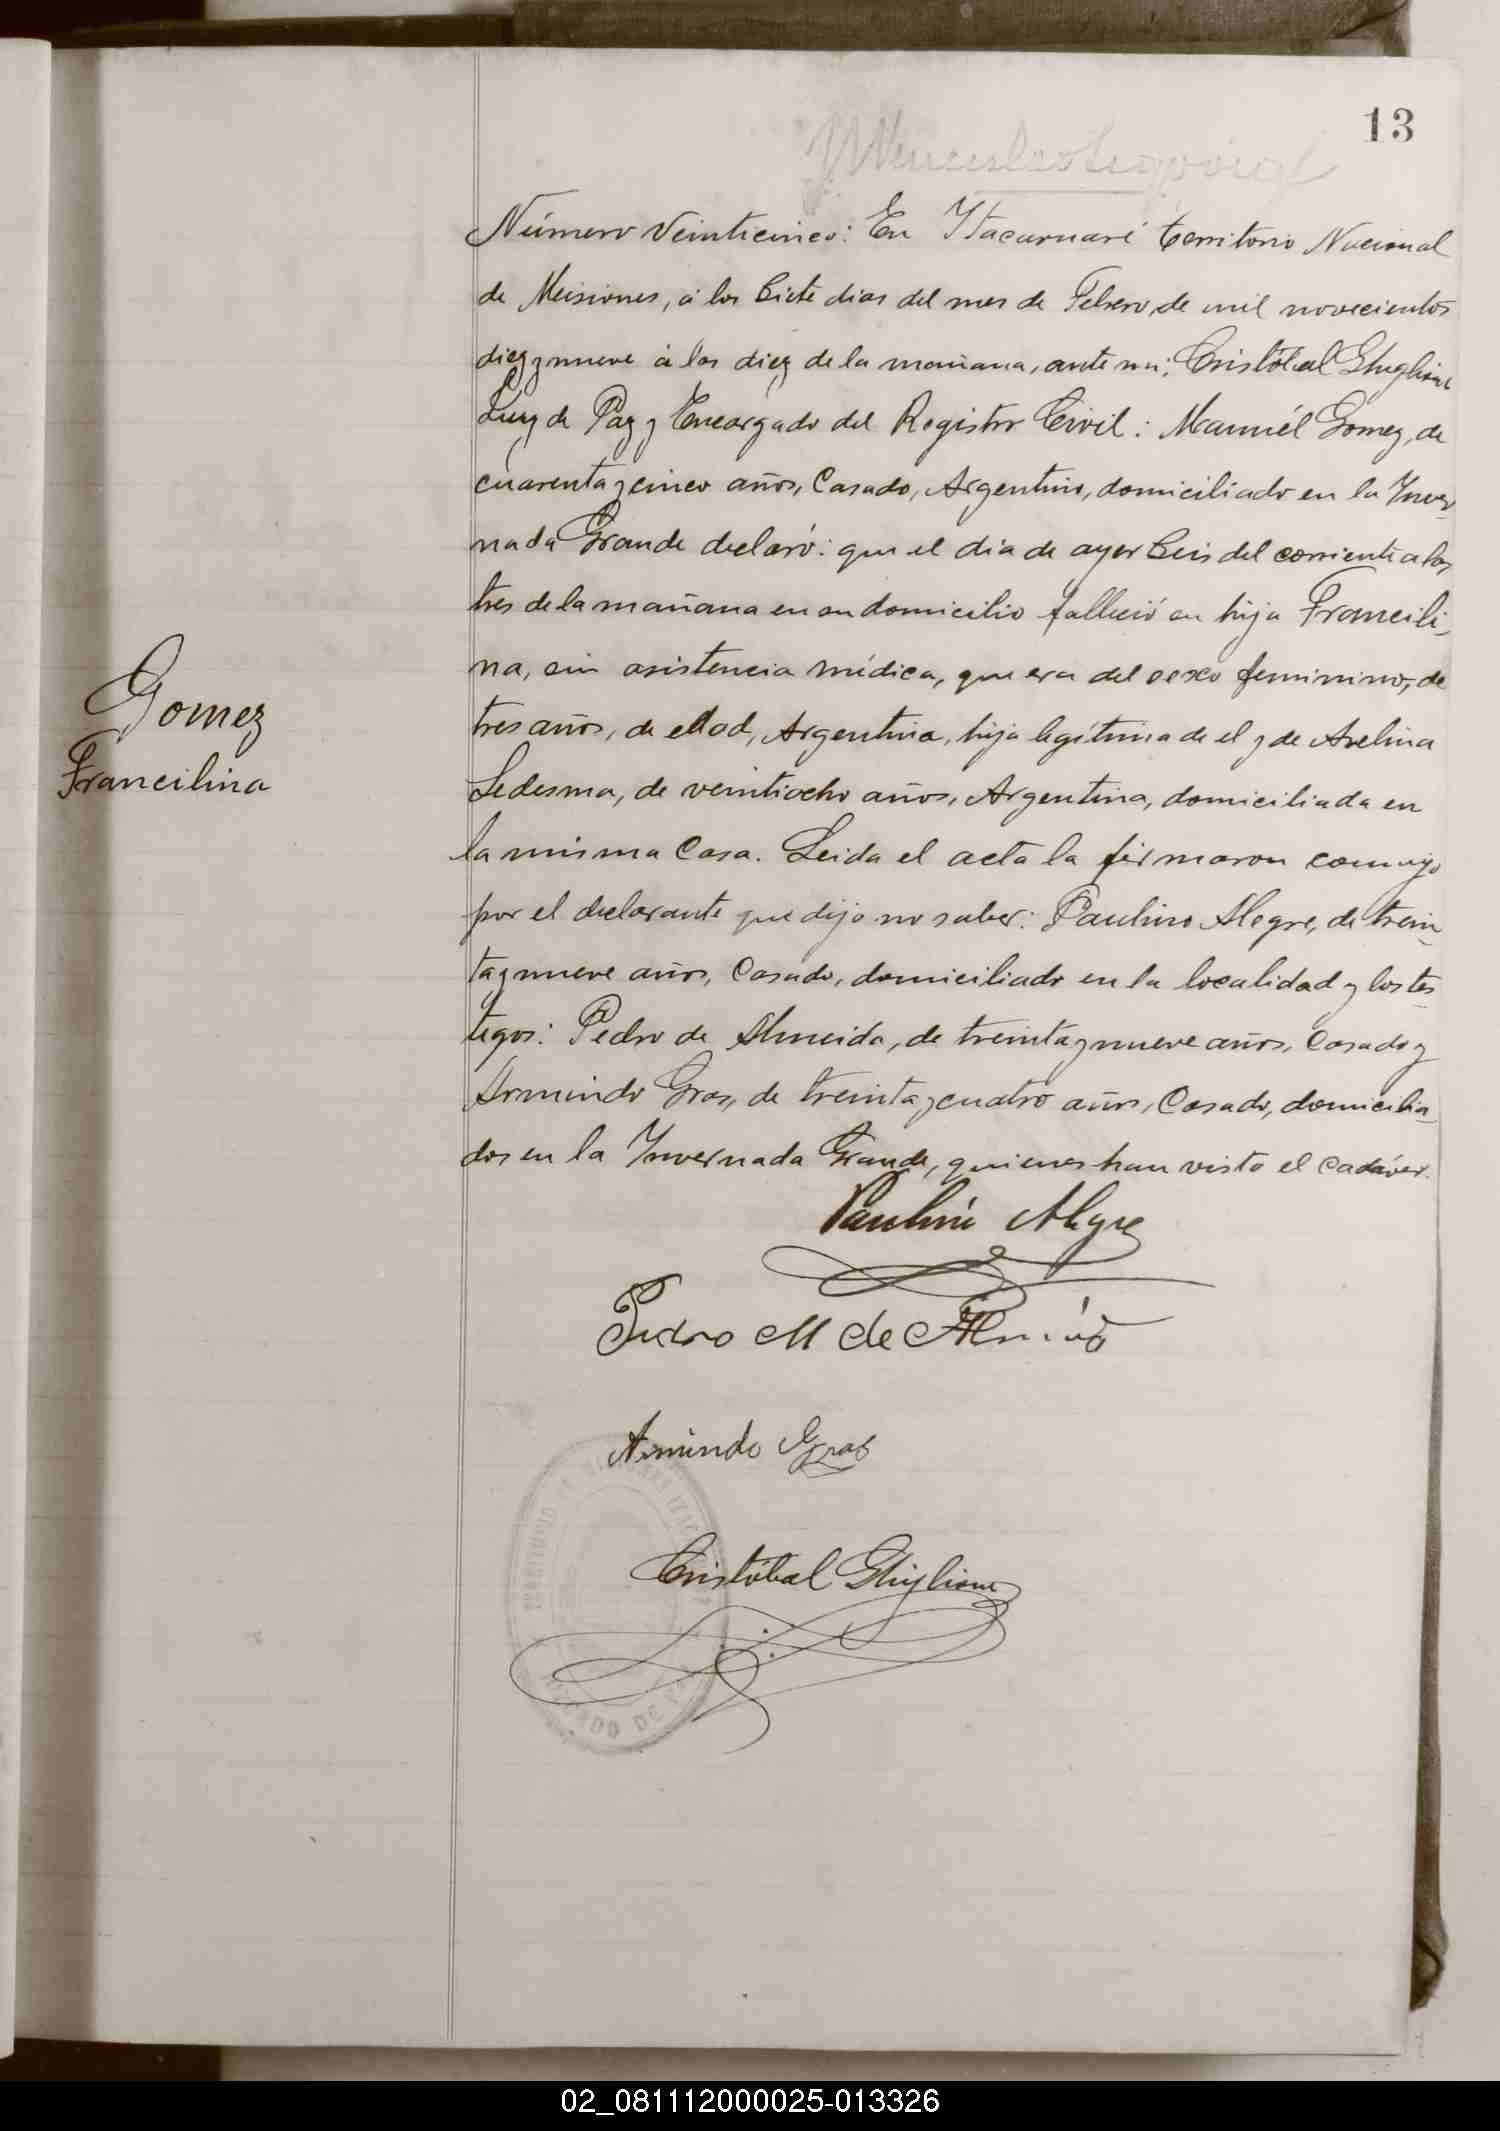 13
Número Veinticinco: En Ytacaruaré territorio Nacional
de Misiones, á los Siete dias del mes de Febrero, de mil novecientos
diez y nueve á las diez de la mañana, ante mi; Cristóbal Ghiglione
Juez de Paz y Encargado del Registro Civil: Manuél Gomez, de
cuarenta y cinco años, Casado, Argentino, domiciliado en la Inver-
nada Grande declaró: que el dia de ayer Seis del corriente a las
tres de la mañana en su domicilio falleció su hija Francili-
na, sin asistencia médica, que era del sexo femenino, de
tres años, de edad, Argentina, hija legítima de el y de Avelina
Gomez
Francilina
Ledesma, de veintiocho años, Argentina, domiciliada en
la misma Casa. Leida el acta la firmaron conmigo
por el declarante que dijo no saber: Paulino Alegre, de trein-
ta y nueve años, Casado, domiciliado en la localidad y los tes-
tigos: Pedro de Almeida, de treinta y nueve años, Casado y
Armindo Gras, de treinta y cuatro años, Casado, domicilia-
dos en la Invernada Grande, quienes han visto el cadáver.
Paulino Alegre
Pedro M de Almeida
Armindo Gras
Cristóbal Ghiglione
JUZGADO DE PAZ
02_081112000025-013326